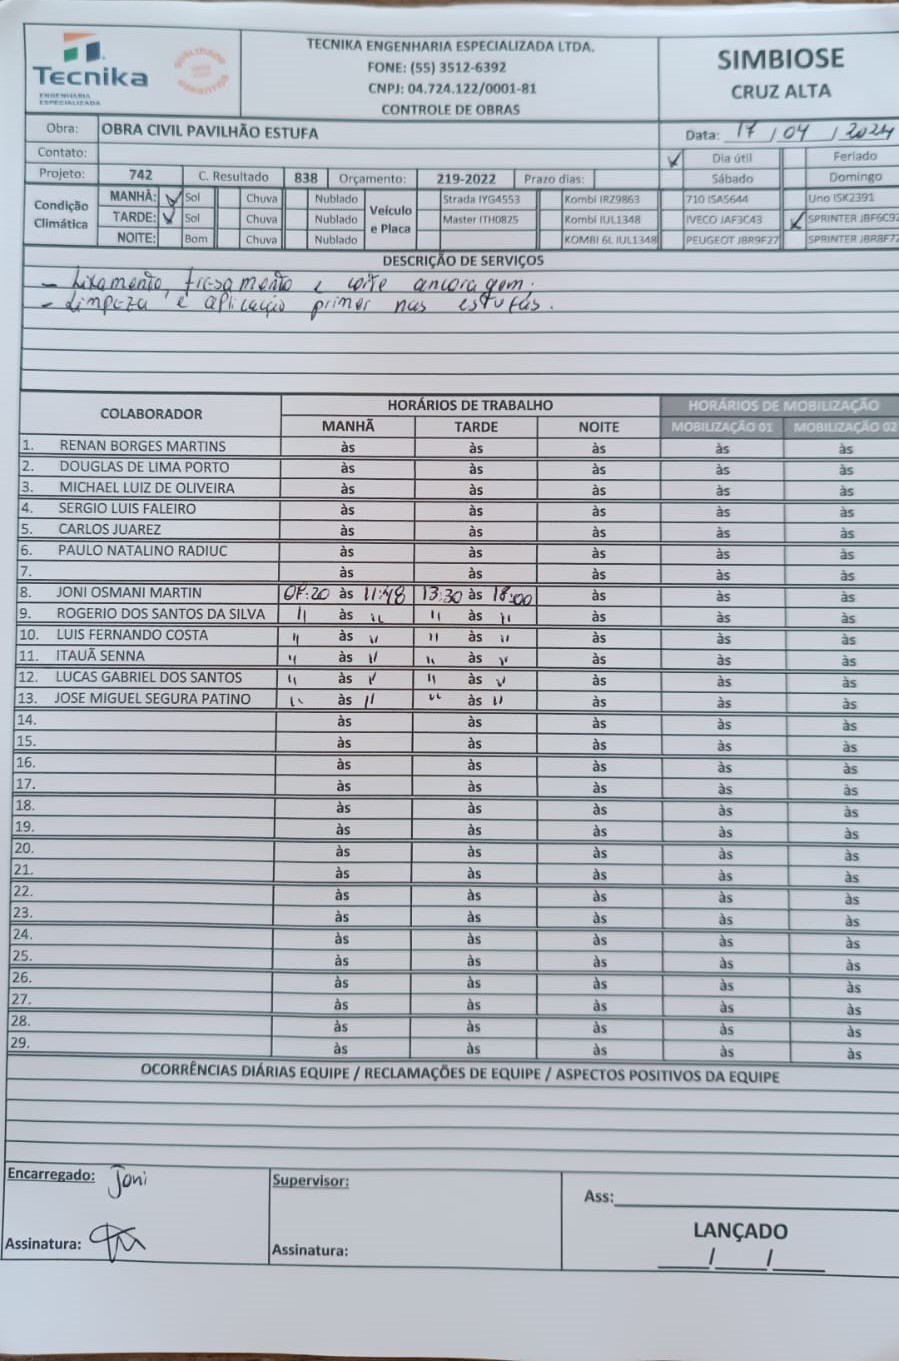 Tecnika
ENGENHARIA
ESPECIALIZADA
TECNIKA ENGENHARIA ESPECIALIZADA LTDA.
FONE: (55) 3512-6392
CNPJ: 04.724.122/0001-81
CONTROLE DE OBRAS
SIMBIOSE
CRUZ ALTA
Obra: OBRA CIVIL PAVILHÃO ESTUFA
Data: 17 / 04 / 2024
Contato:
Dia útil Feriado
Projeto: 742 C. Resultado 838 Orçamento: 219-2022 Prazo dias:
Sábado Domingo
Condição Climática
MANHÃ: Sol Chuva Nublado
TARDE: Sol Chuva Nublado
NOITE: Bom Chuva Nublado
Veículo e Placa
Strada IYG4553 Kombi IRZ9863 710 ISA5644 Uno ISK2391
Master ITH0825 Kombi IUL1348 IVECO JAF3C43 SPRINTER JBF6C92
KOMBI 6L IUL1348 PEUGEOT JBR9F27 SPRINTER JBR8F72
DESCRIÇÃO DE SERVIÇOS
- Lixamento, fresamento e corte ancoragem.
- Limpeza e aplicação primer nas estufas.
COLABORADOR HORÁRIOS DE TRABALHO HORÁRIOS DE MOBILIZAÇÃO
MANHÃ TARDE NOITE MOBILIZAÇÃO 01 MOBILIZAÇÃO 02
1. RENAN BORGES MARTINS às às às às às
2. DOUGLAS DE LIMA PORTO às às às às às
3. MICHAEL LUIZ DE OLIVEIRA às às às às às
4. SERGIO LUIS FALEIRO às às às às às
5. CARLOS JUAREZ às às às às às
6. PAULO NATALINO RADIUC às às às às às
7. às às às às às
8. JONI OSMANI MARTIN 08:20 às 11:48 13:30 às 18:00 às às às
9. ROGERIO DOS SANTOS DA SILVA " às " " às " às às às
10. LUIS FERNANDO COSTA " às " " às " às às às
11. ITAUÃ SENNA " às " " às " às às às
12. LUCAS GABRIEL DOS SANTOS " às " " às " às às às
13. JOSE MIGUEL SEGURA PATINO " às " " às " às às às
14. às às às às às
15. às às às às às
16. às às às às às
17. às às às às às
18. às às às às às
19. às às às às às
20. às às às às às
21. às às às às às
22. às às às às às
23. às às às às às
24. às às às às às
25. às às às às às
26. às às às às às
27. às às às às às
28. às às às às às
29. às às às às às
OCORRÊNCIAS DIÁRIAS EQUIPE / RECLAMAÇÕES DE EQUIPE / ASPECTOS POSITIVOS DA EQUIPE
Encarregado: Joni
Supervisor:
Ass:
LANÇADO
Assinatura:
Assinatura:
/ /